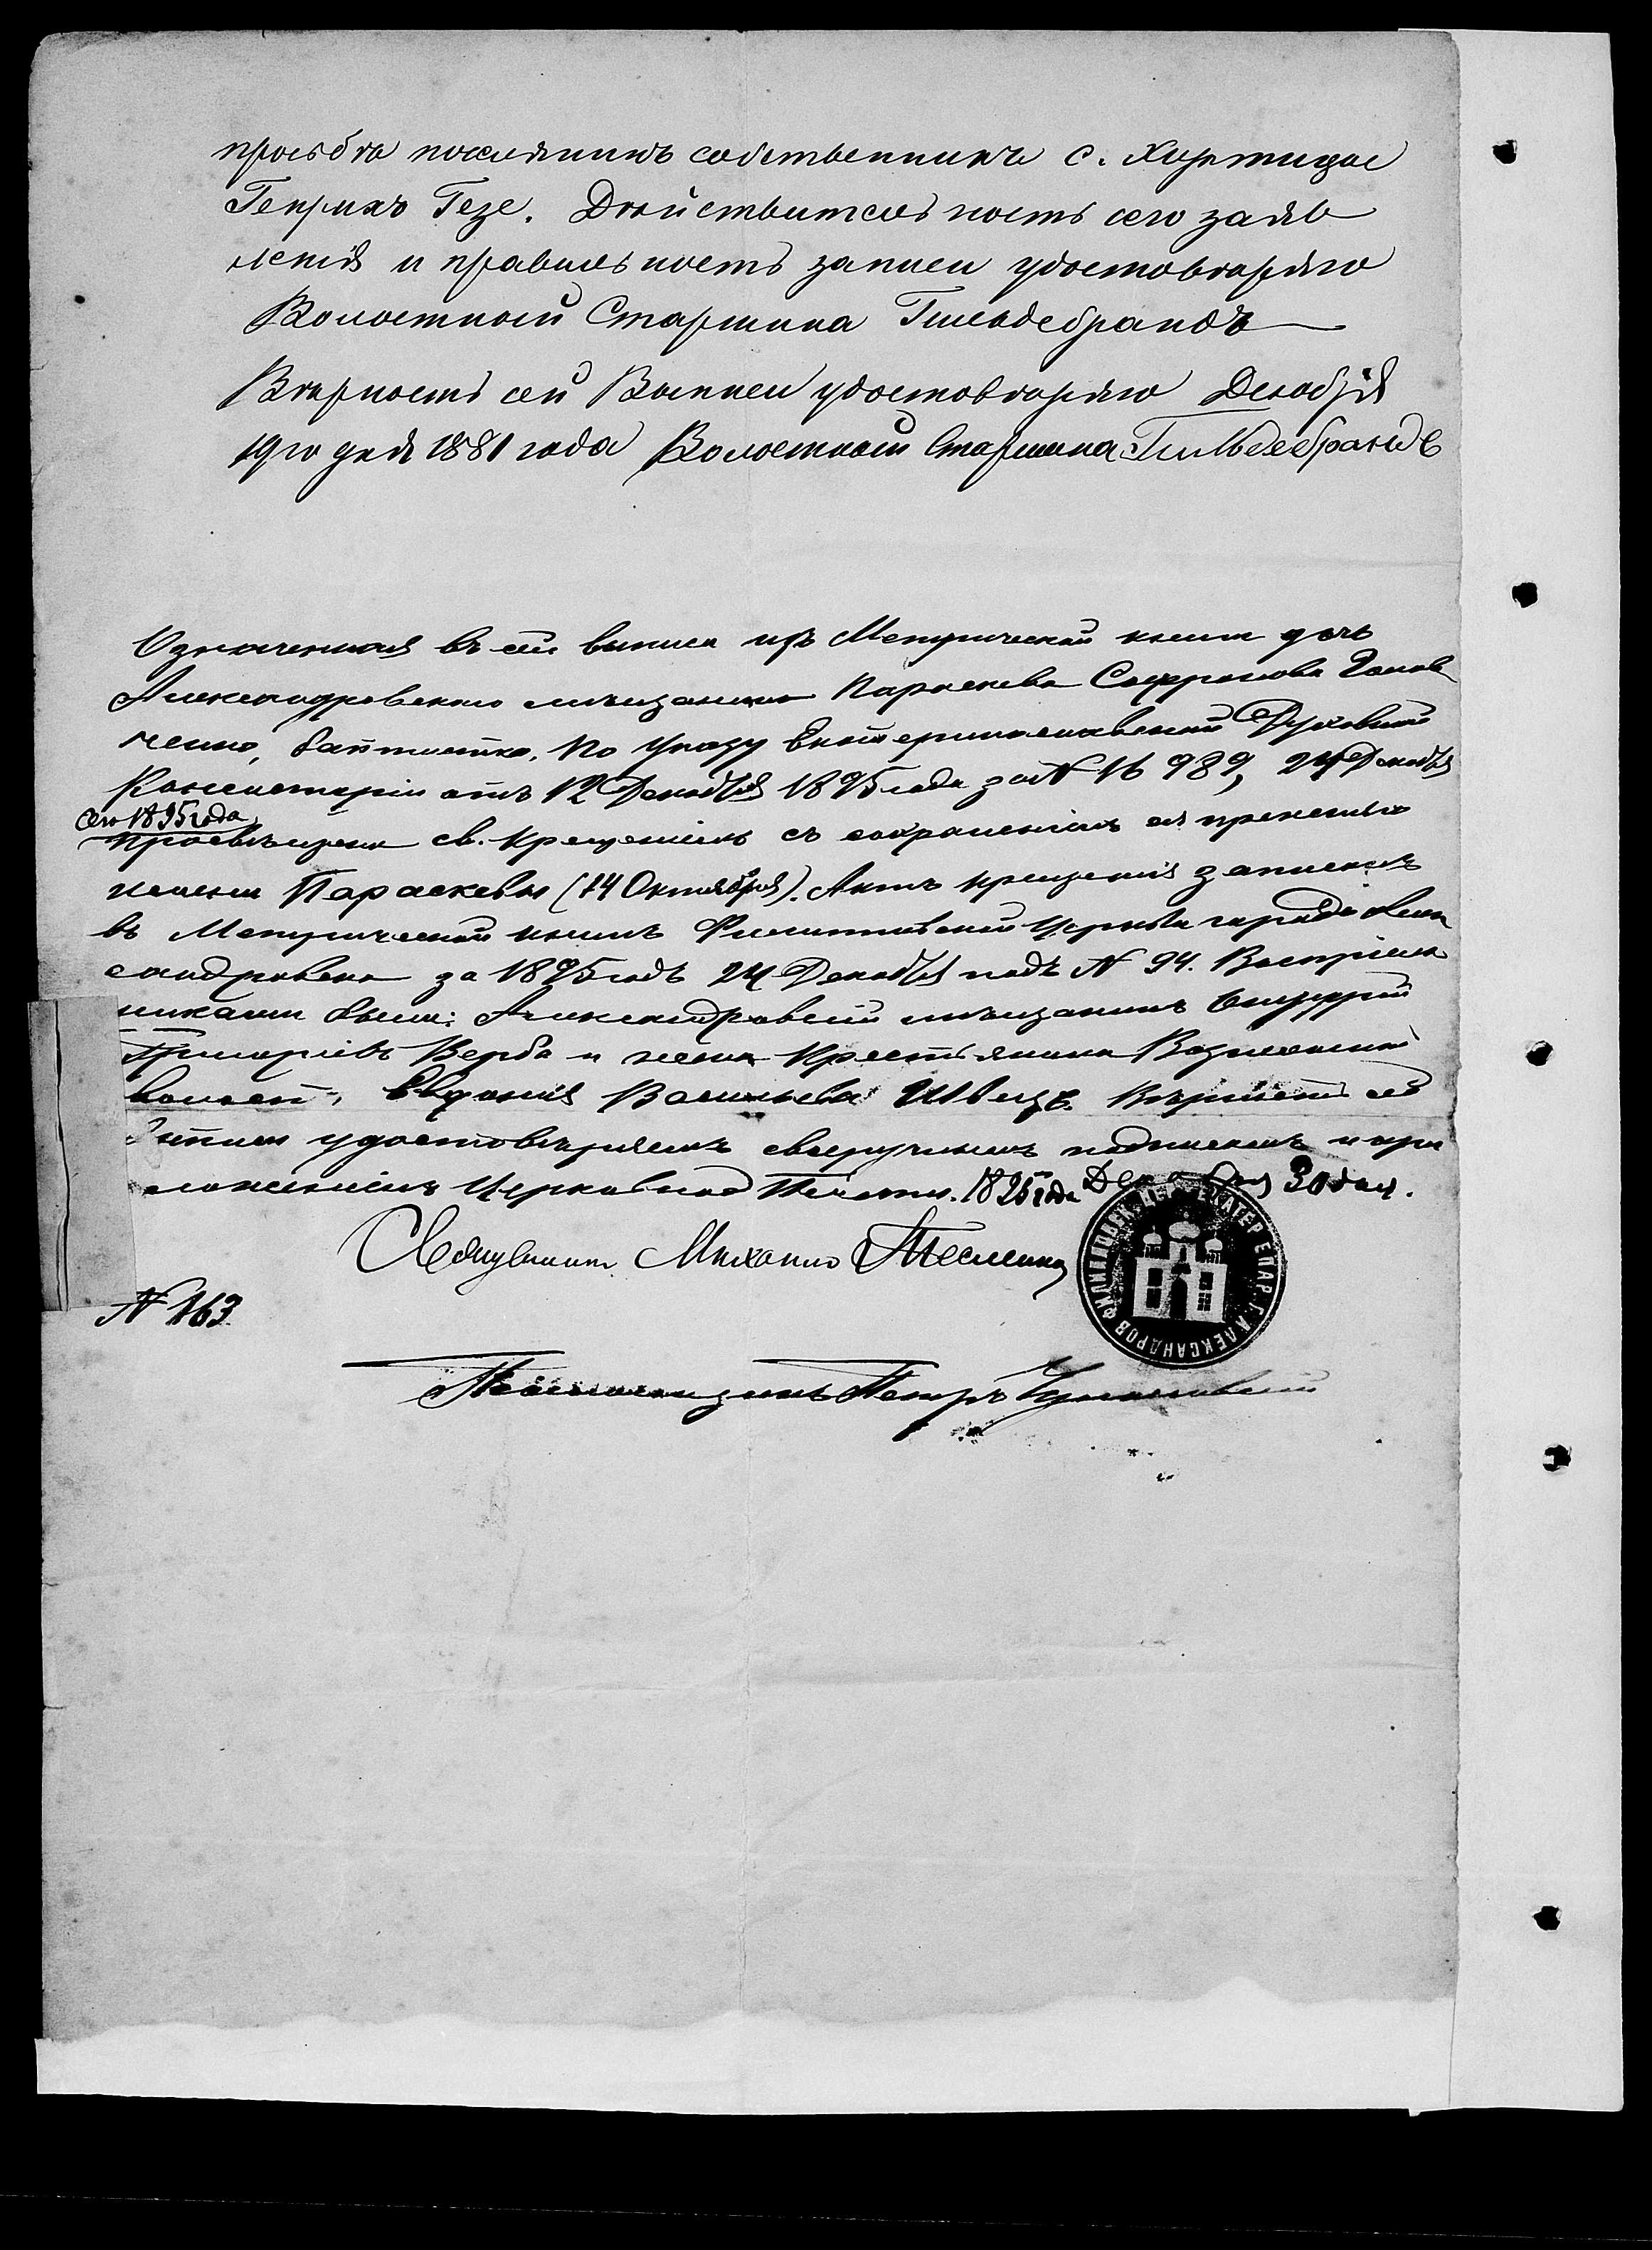 просьбѣ поселянинъ собственникъ с. Хортицы
Генрихъ Гезе. Дѣйствительность сего заяв
ленія и правильность записи удостовѣряю
Волостной Старшина Гильдебрандъ
Вѣрность сей Выписи удостовѣряю Декабря
19го дня 1881 года Волостной Старшина Гильдебрандъ
Означенная въ сей выписи изъ Метрической книги дочь
Александровскаго мѣщанина Параскева Софронова
ченко, баптистка, по Указу Екатеринославской Духовной
Консисторіи отъ 12 Декабря 1895 года за № 16989, 24 Декабря
сего 1895 года
просвѣщена св. крещеніемъ съ сохраненіемъ ея прежняго
имени Параскевы (14 Октября). Актъ крещенія записанъ
въ Метрической книгѣ Филипповской Церкви города Алек
сандровска за 1895 годъ 24 Декабря подъ № 94. Воспріем
никами были: Александровскій мѣщанинъ
Григоріевъ Верба и жена Крестьянина Вознесенской
волост. Евдокія Васильева Швецъ. Вѣрность сей
выписи удостовѣряемъ своеручнымъ подписомъ и при
ложеніемъ Церковной Печати. 1895 года Декабря 30 дня.
Священникъ Михаилъ
№ 163
ФИЛИППОВСК. ЦЕР. ЕКАТЕР. ЕПАР. Г. АЛЕКСАНДРОВ
Псаломщикъ Петръ